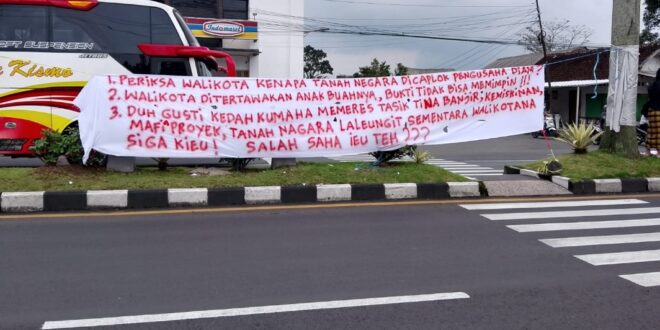 OFT SUSPENSION
Kismo
Indomaret
1. PERIKSA WALIKOTA KENAPA TANAH NEGARA DICAPLOK PENGUSAHA DIAM
2. WALIKOTA DITERTAWAKAN ANAK BUAHNYA, BUKTI TIDAK BISA MEMIMPIN!!!
3. DUH GUSTI KEDAH KUMAHA MEMERES TASIK TINA BANJIR, KEMISKINAN,
MAFIA PROYEK, TANAH NAGARA LALEUNGIT, SEMENTARA WALIKOTANA
SIGA KIEU! SALAH SAHA IEU TEH???